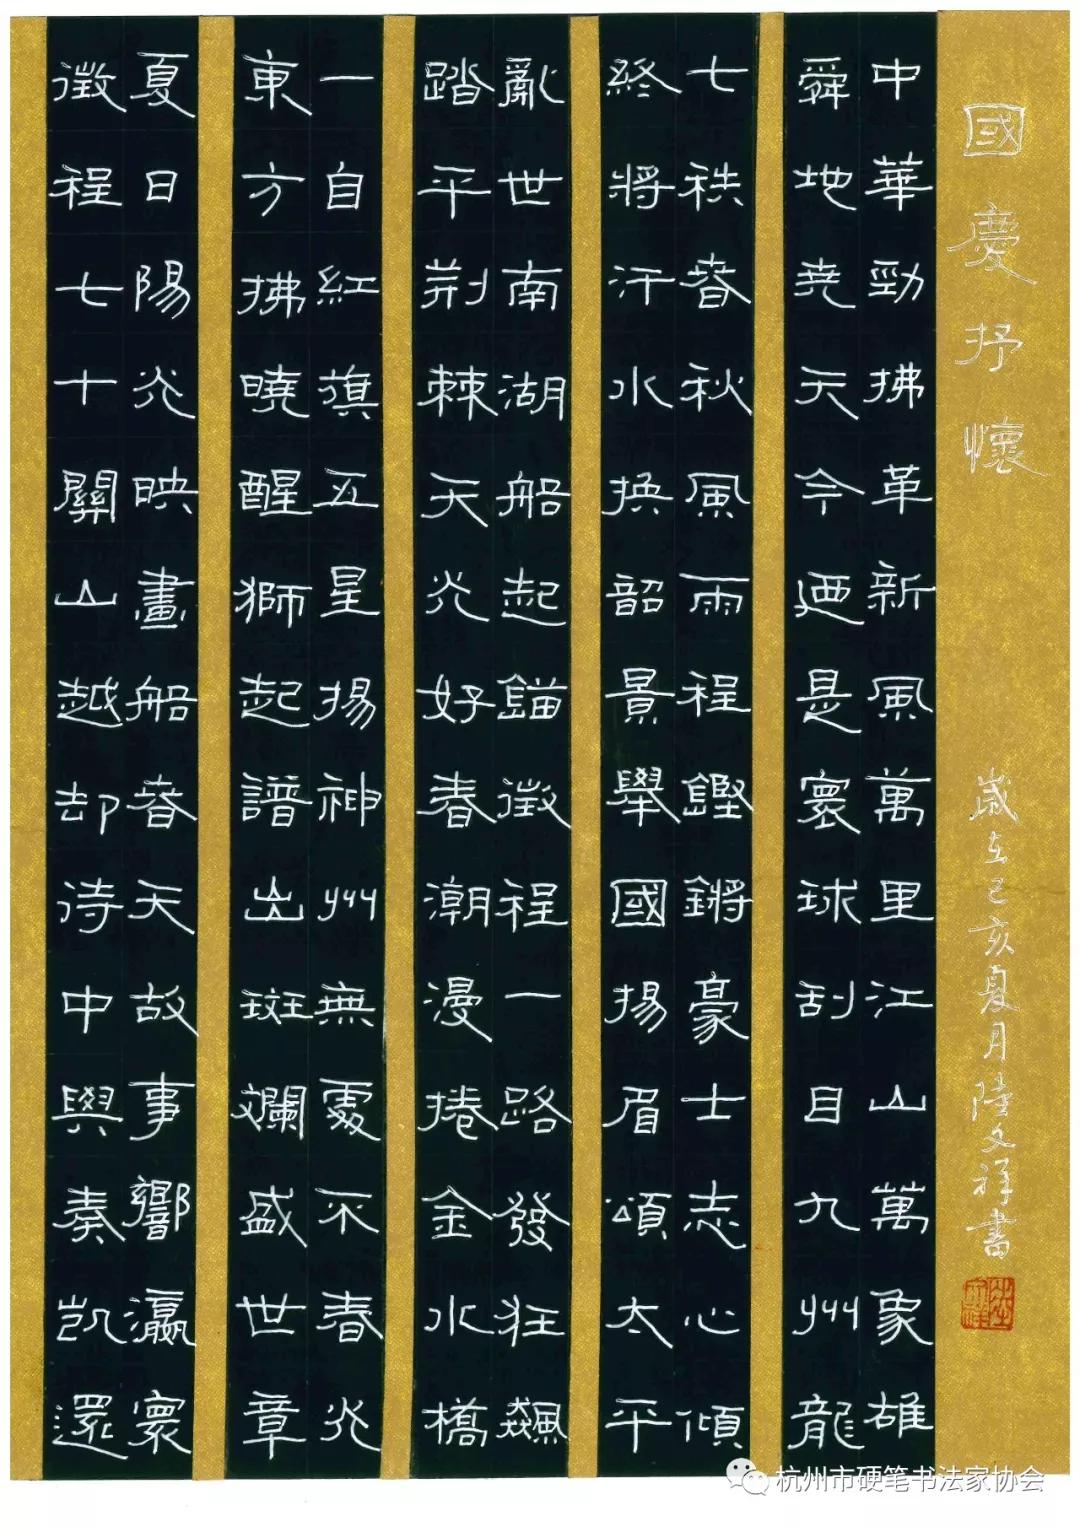 國慶抒懷
中華勁拂革新風萬里江山萬象雄
舜地堯天今迺是寰球刮目九州龍
七秩春秋風雨程鏗鏘豪士志心傾
終將汗水換韶景舉國揚眉頌太平
亂世南湖船起錨徵程一路發狂飆
踏平荆棘天光好春潮漫捲金水橋
一自紅旗五星揚神州無處不春光
東方拂曉醒獅起譜出斑斕盛世章
夏日陽光映畫船春天故事響瀛寰
徵程七十關山越却待中興奏凱還
歲在己亥夏月陸文祥書
杭州市硬笔书法家协会